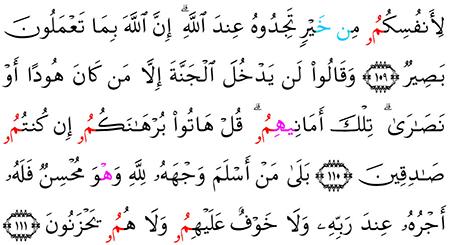 لِأَنفُسِكُمُۥ مِن خَيْرٖ تَجِدُوهُ عِندَ اَ۬للَّهِۖ إِنَّ اَ۬للَّهَ بِمَا تَعْمَلُونَ
بَصِيرٞ ١٠٩ وَقَالُوا۟ لَن يَدْخُلَ اَ۬لْجَنَّةَ إِلَّا مَن كَانَ هُودًا أَوْ
نَصَـٰرَىٰۖ تِلْكَ أَمَانِيهِمُۥۖ قُلْ هَاتُوا۟ بُرْهَـٰنَكُمُۥ إِن كُنتُمُۥ
صَـٰدِقِينَ ١١٠ بَلَىٰ مَنْ أَسْلَمَ وَجْهَهُۥ لِلَّهِ وَهْوَ مُحْسِنٞ فَلَهُۥ
أَجْرُهُۥ عِندَ رَبِّهِۦ وَلَا خَوْفٌ عَلَيْهِمُۥ وَلَا هُمُۥ يَحْزَنُونَ ١١١